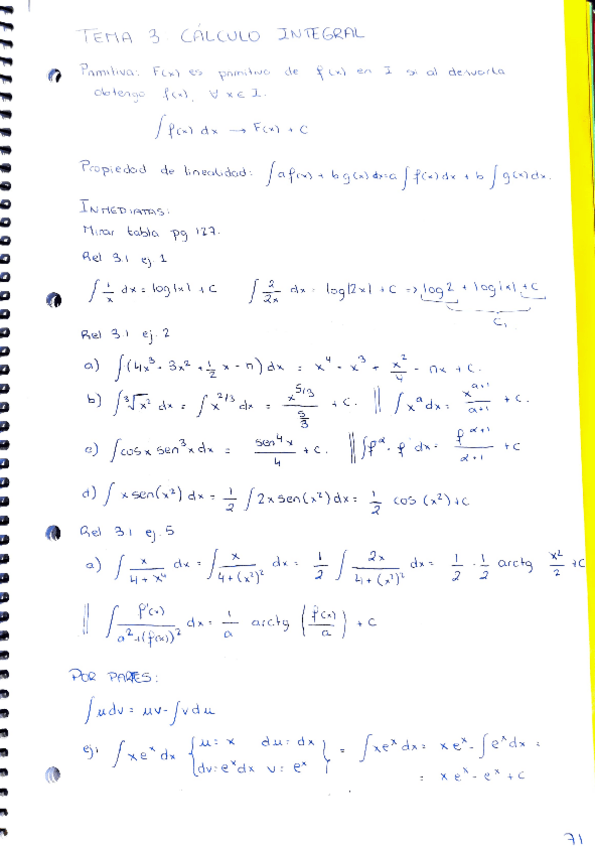 TEMA 3 CÁLCULO INTEGRAL
Primitiva: F(x) es primitiva de f(x) en I si al derivarla
obtengo f(x), ∀ x ∈ I.
∫ f(x) dx → F(x) + C
Propiedad de linealidad: ∫ a f(x) + b g(x) dx = a ∫ f(x) dx + b ∫ g(x) dx.
INMEDIATAS:
Mirar tabla pg 127.
Rel 3.1 ej. 1
∫ 1/x dx = log|x| + C ∫ 2/2x dx = log|2x| + C => log 2 + log|x| + C
C₁
Rel 3.1 ej. 2
a) ∫ (4x³ - 3x² + 1/2 x - π) dx = x⁴ - x³ + x²/4 - πx + C.
b) ∫ ∛x² dx = ∫ x^2/3 dx = x^5/3 / 5/3 + C. || ∫ x^a dx = x^a+1 / a+1 + C.
c) ∫ cos x sen³ x dx = sen⁴ x / 4 + C. || ∫ f^α · f' dx = f^α+1 / α+1 + C
d) ∫ x sen(x²) dx = 1/2 ∫ 2x sen(x²) dx = 1/2 cos (x²) + C
Rel 3.1 ej. 5
a) ∫ x / 4 + x⁴ dx = ∫ x / 4 + (x²)² dx = 1/2 ∫ 2x / 4 + (x²)² dx = 1/2 · 1/2 arctg x²/2 + C
|| ∫ f'(x) / a² + (f(x))² dx = 1/a arctg (f(x)/a) + C
POR PARTES:
∫ u dv = uv - ∫ v du
ej: ∫ x eˣ dx { u = x du = dx dv = eˣ dx v = eˣ } = ∫ x eˣ dx = x eˣ - ∫ eˣ dx =
= x eˣ - eˣ + C
71